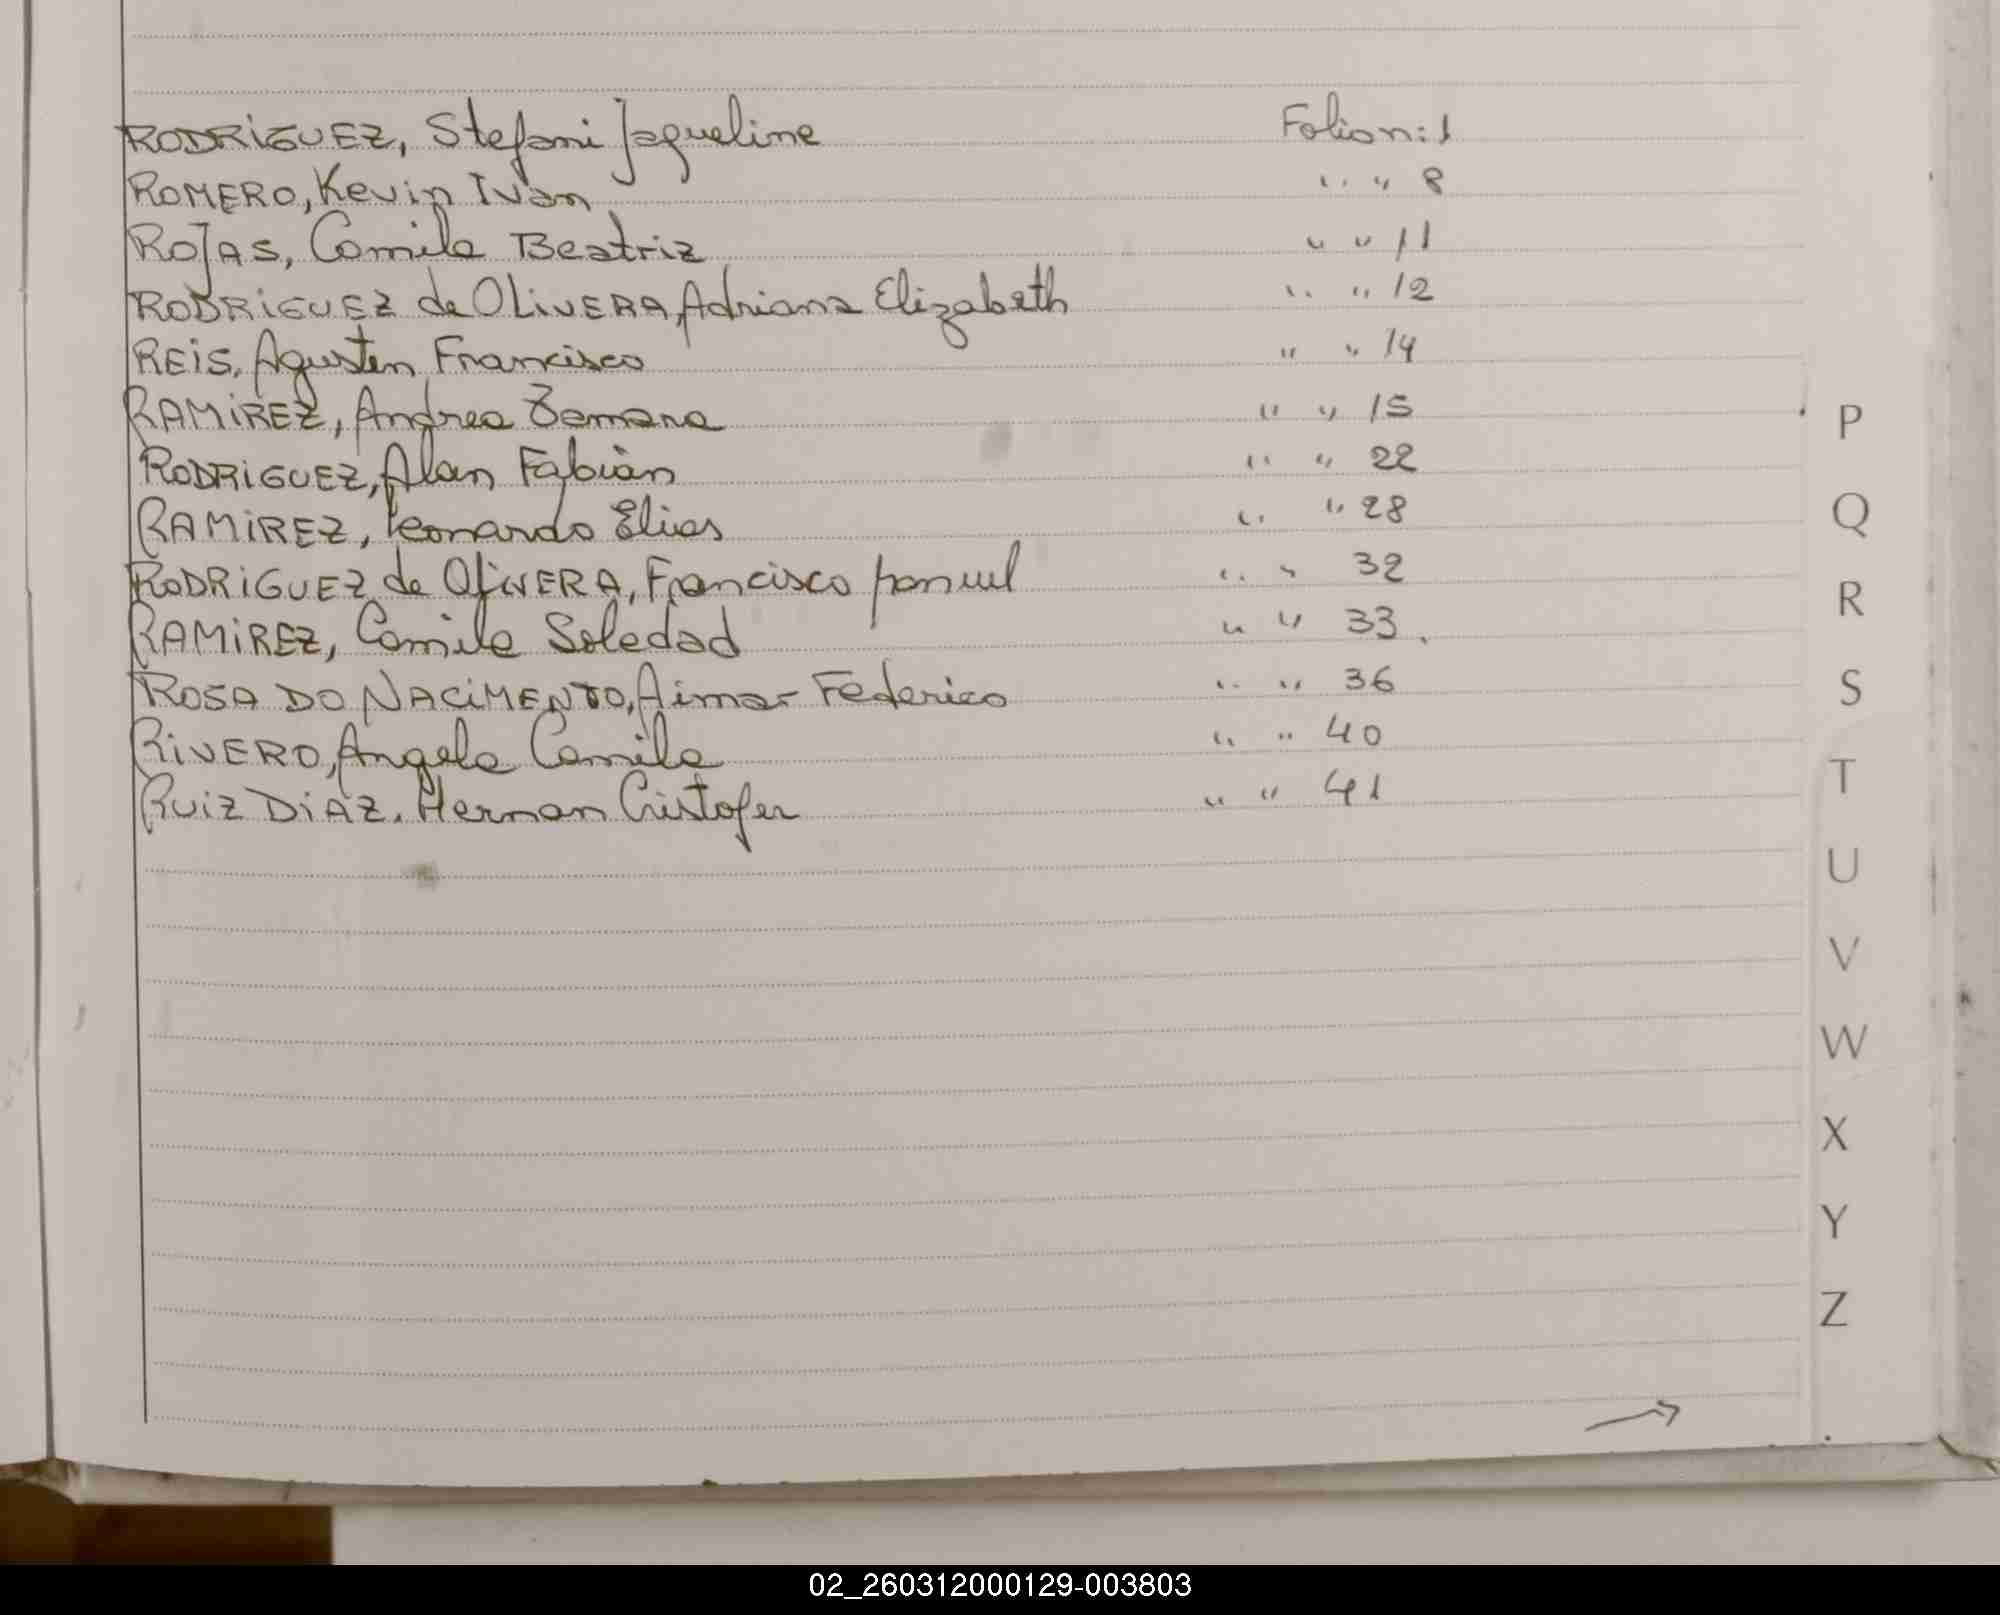 RODRIGUEZ, Stefani Jaqueline Folio n: 1
ROMERO, Kevin Ivan " " 8
ROJAS, Camila Beatriz " " 11
RODRIGUEZ de OLIVERA, Adriana Elizabeth " " 12
REIS, Agusten Francisco " " 14
RAMIREZ, Andrea " " 15
RODRIGUEZ, Alan Fabián " " 22
RAMIREZ, Leonardo Elias " " 28
RODRIGUEZ de OLIVERA, Francisco " " 32
RAMIREZ, Camila Soledad " " 33
ROSA DO NACIMENTO, Aimar Federico " " 36
RIVERO, Angela Camila " " 40
RUIZ DIAZ, Hernan Cristofer " " 41
P
Q
R
S
T
U
V
W
X
Y
Z
02_260312000129-003803